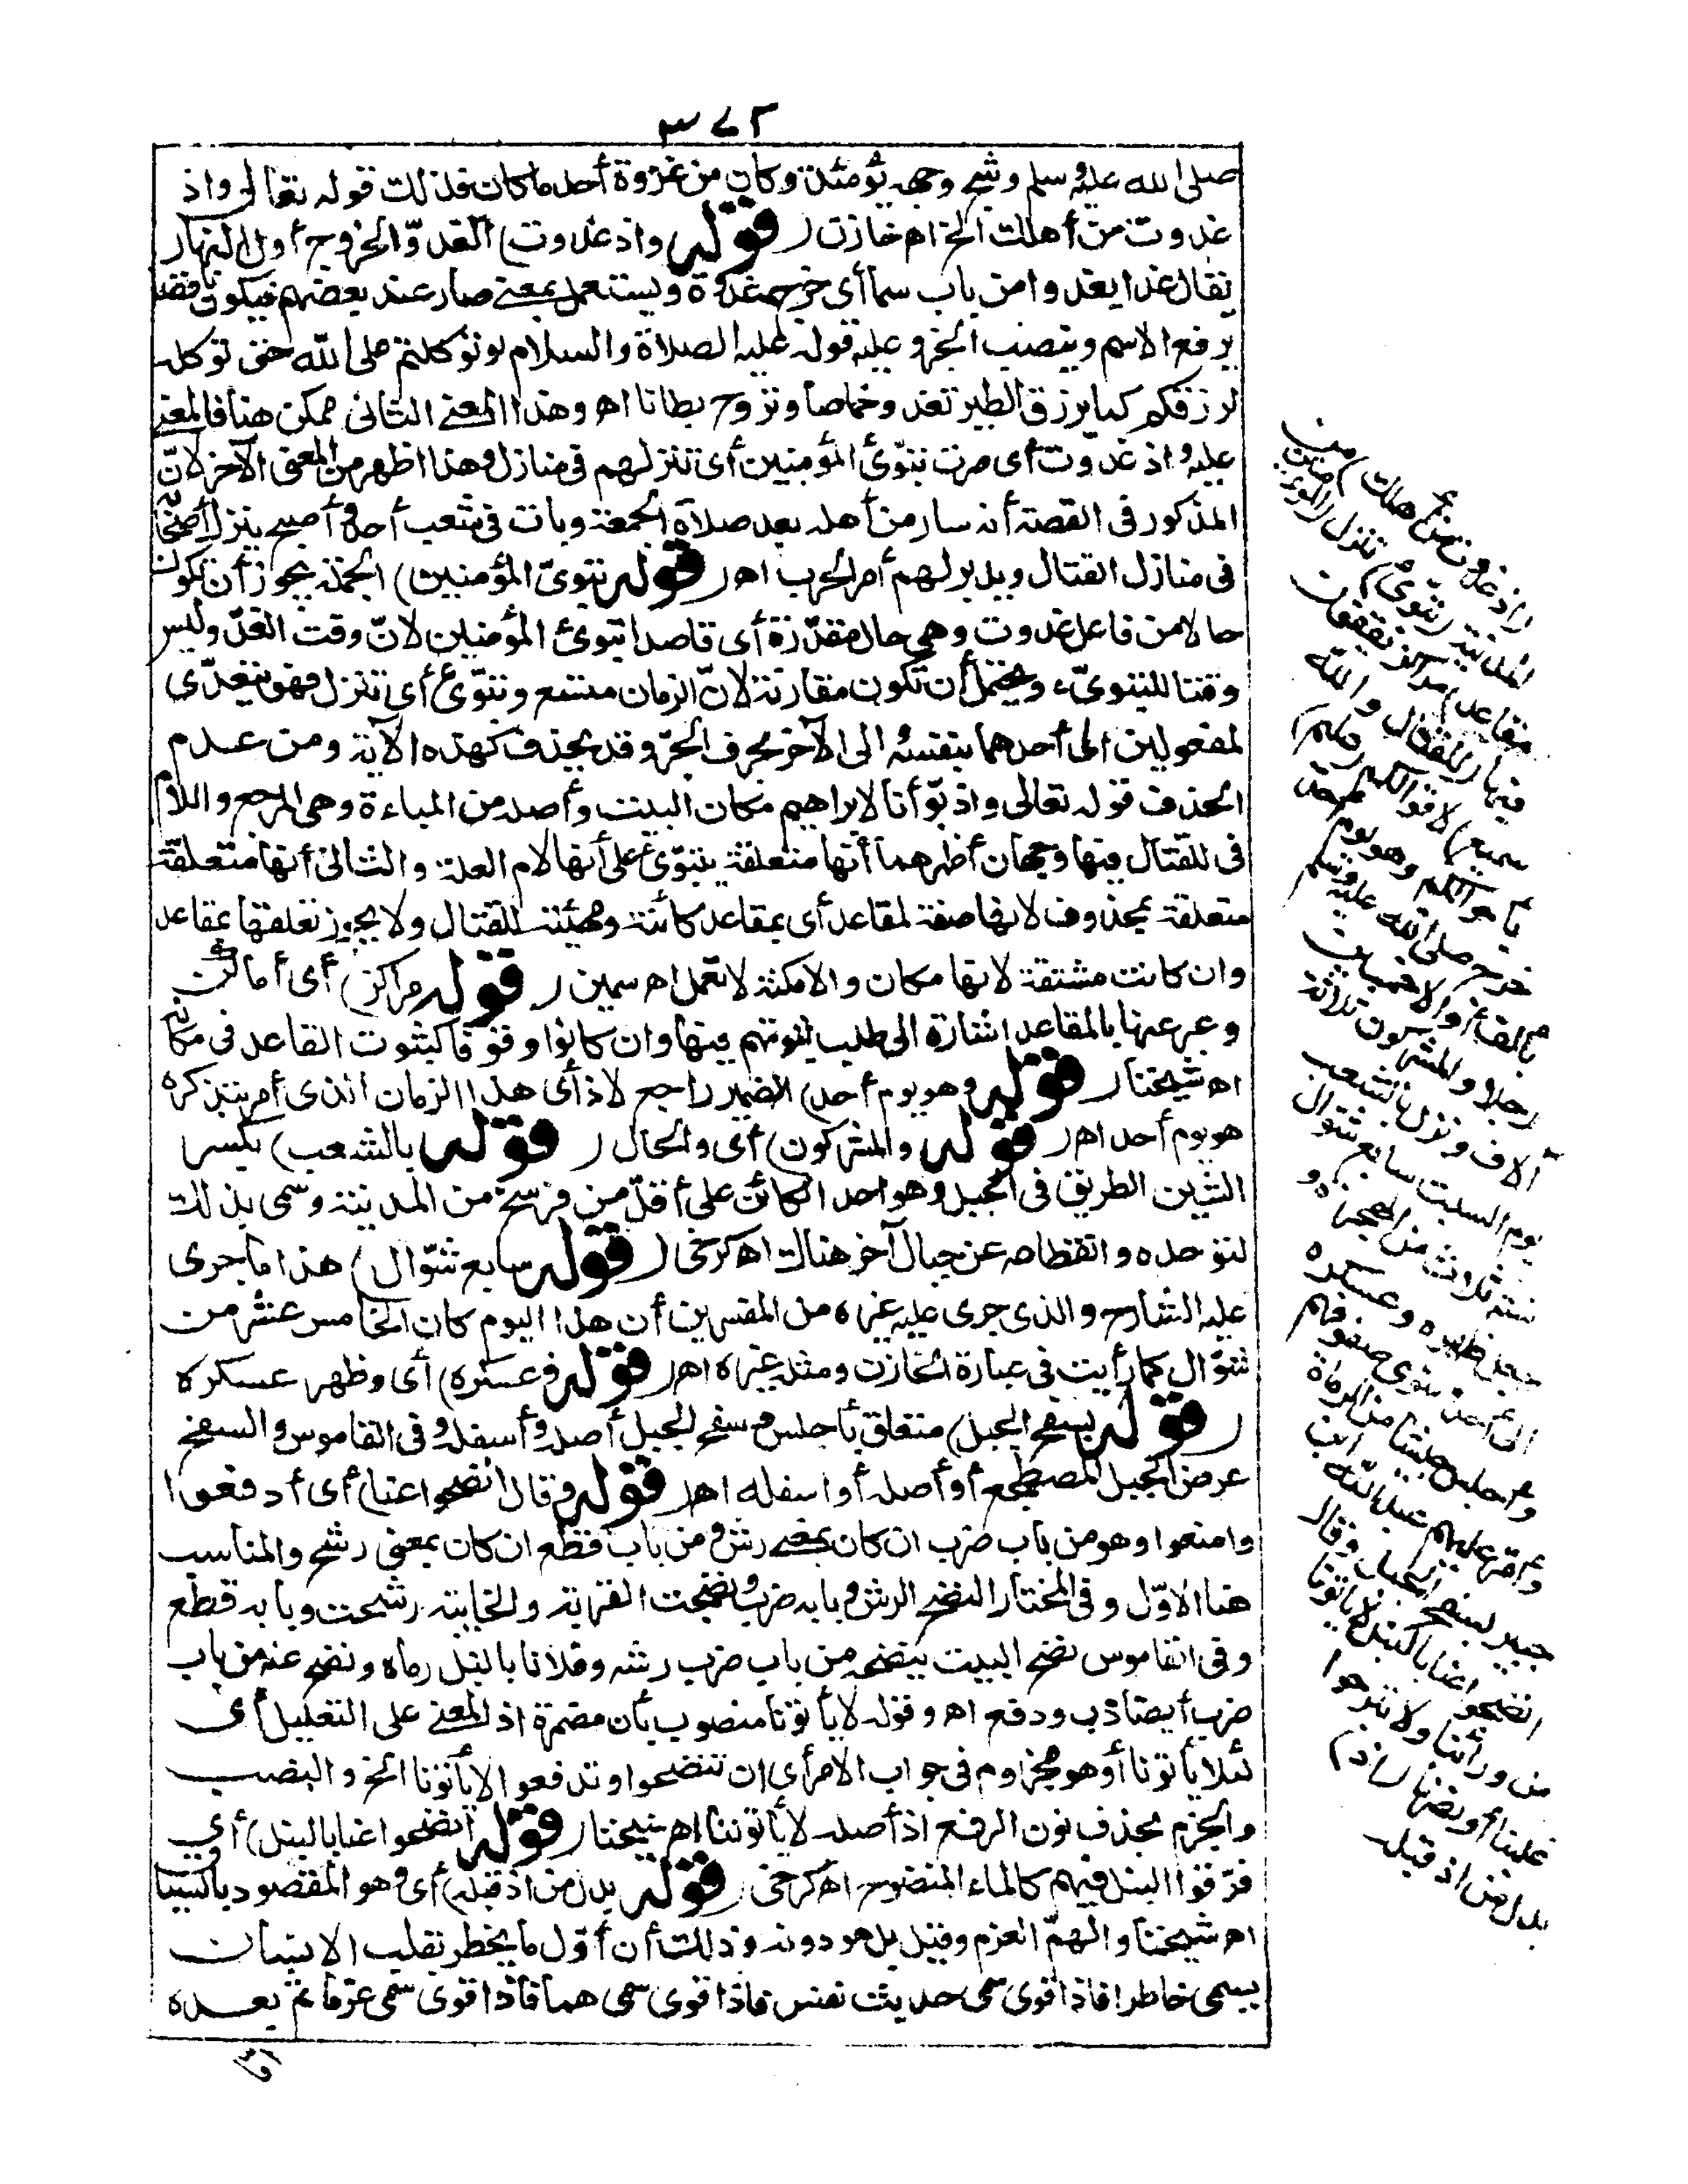 ٣٧٢
صلى الله عليه وسلم وشج وجهه يومئذ وكان من غزوة أحد ما كان فذلك قوله تعالى واذ
غدوت من أهلك الخ اه خازن (قوله واذ غدوت) الغدوّ الخروج أول النهار
يقال غدا يغدو من باب سما أى خرج غدوة ويستعمل بمعنى صار عند بعضهم فيكون ناقصا
يرفع الاسم وينصب الخبر وعليه قوله عليه الصلاة والسلام لو توكلتم على الله حق توكله
لرزقكم كما يرزق الطير تغدو خماصا وتروح بطانا اه وهذا المعنى الثانى ممكن هنا فالمعنى
عليه واذ غدوت أى صرت تبوّئ المؤمنين أى تنزلهم فى منازل وهذا اظهر من المعنى الآخر لانّ
المذكور فى القصة أنه سار من أهله بعد صلاة الجمعة وبات فى شعب أحد وأصبح ينزل أصحابه
فى منازل القتال ويدبر لهم أمر الحرب اه (قوله تبوئ المؤمنين) الجملة يجوز أن تكون
حالا من فاعل غدوت وهى حال مقدّرة أى قاصدا تبوئ المؤمنين لانّ وقت الغدوّ وليس
وقتا للتبوىء ويحتمل أن تكون مقارنة لانّ الزمان متسع وتبوّئ أى تنزل فهو يتعدّى
لمفعولين الى أحدهما بنفسه الى الآخر بحرف الجرّ وقد يحذف كهذه الآية ومن عدم
الحذف قوله تعالى واذ بوّأنا لابراهيم مكان البيت وأصله من المباءة وهى المرجع واللام
فى للقتال فيها وجهان أظهرهما أنها متعلقة بتبوّئ على أنها لام العلة والثانى أنها متعلقة
متعلقة بمحذوف لانها صفة لمقاعد أى بمقاعد كائنة ومهيئة للقتال ولا يجوز تعلقها بمقاعد
وان كانت مشتقة لانها مكان والامكنة لا تعمل اه سمين (قوله مراكز) أى أماكن
وعبر عنها بالمقاعد اشارة الى طلب ثبوتهم فيها وان كانوا وقوفا كثبوت القاعد فى مكانه
اه شيخنا (قوله وهو يوم أحد) الضمير راجع لاذ أى هذا الزمان الذى أمر بتذكره
هو يوم أحد اه (قوله والمشركون) أى والحال (قوله بالشعب) بكسر
الشين الطريق فى الجبل وهو احد الكائن على أقلّ من فرسخ من المدينة وسمى بذلك
لتوحده وانقطاعه عن جبال آخر هناك اه كرخى (قوله سابع شوّال) هذا ما جرى
عليه الشارح والذى جرى عليه غيره من المفسرين أن هذا اليوم كان الخامس عشر من
شوّال كما رأيت فى عبارة الخازن ومثله غيره اه (قوله وعسكره) أى وظهر عسكره
(قوله بسفح الجبل) متعلق بأجلس وسفح الجبل أصله وأسفله وفى القاموس والسفح
عرض الجبل المضطجع أو أصله أو اسفله اه (قوله وقال انضحوا عنا) أى أدفعوا
وامنعوا وهو من باب ضرب ان كان بمعنى رش ومن باب قطع ان كان بمعنى رشح والمناسب
هنا الاوّل وفى المختار النضح الرش وبابه ضرب ونضحت القربة والخابية رشحت وبابه قطع
وفى القاموس نضح البيت ينضحه من باب ضرب رشه وفلانا بالنبل رماه ونضح عنه من باب
ضرب أيضا ذب ودفع اه وقوله لا يأتونا منصوب بأن مضمرة اذ المعنى على التعليل أى
لئلا يأتونا أو هو مجزوم فى جواب الامر أى ان تنضحوا وتدفعوا لا يأتونا الخ والنصب
والجزم بحذف نون الرفع اذ أصله لا يأتوننا اه شيخنا (قوله انضحوا عنا بالنبل) أى
فرّقوا النبل فيهم كالماء المنضوح اه كرخى (قوله بدل من اذ قبله) أى وهو المقصود بالسياق
اه شيخنا والهمّ العزم وقيل بل هو دونه وذلك أن أوّل ما يخطر بقلب الانسان
يسمى خاطرا فاذا قوى سمى حديث نفس فاذا قوى سمى هما فاذا قوى سمى عزما ثم بعده
(واذ غدوت من أهلك) من
المدينة (تبوئ) تنزل (المؤمنين
مقاعد) مراكز يقفون
فيها (للقتال والله
سميع) لاقوالكم (عليم)
بأحوالكم وهو يوم أحد
خرج صلى الله عليه وسلم
بألف أو الاخمسين
رجلا والمشركون ثلاثة
آلاف ونزل بالشعب
يوم السبت سابع شوال
سنة ثلاث من الهجرة و
جعل ظهره وعسكره
الى أحد وسوى صفوفهم
وأجلس جيشا من الرماة
وأمر عليهم عبد الله ابن
جبير بسفح الجبل وقال
انضحوا عنا بالنبل لا يأتونا
من ورائنا ولا تبرحوا
غلبنا أو نصرنا (اذ)
بدل من اذ قبله